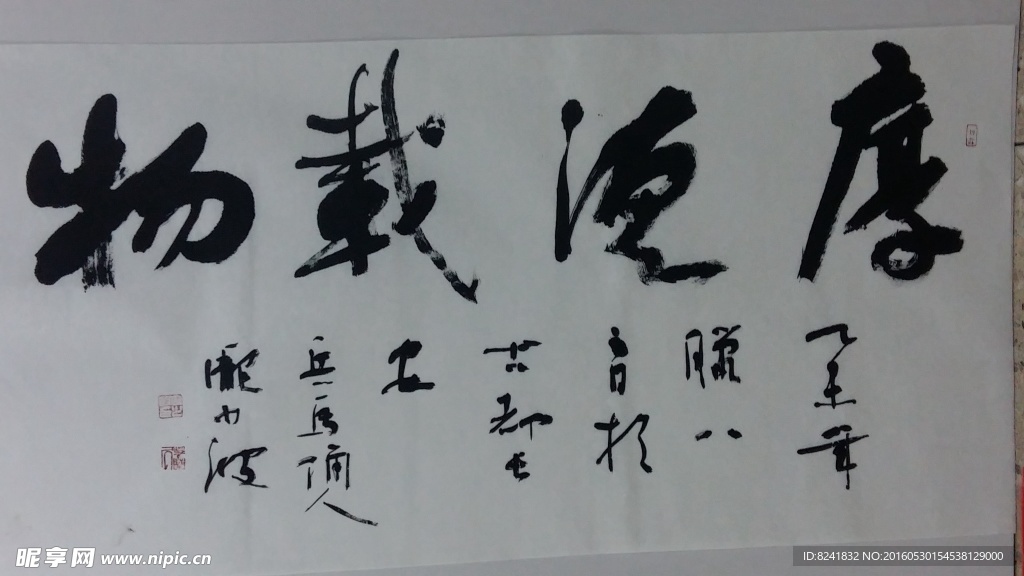 厚德载物
乙未年
腊八
吉日於
古都长
安
兵马俑人
庞山波
昵享网 www.nipic.cn
ID:8241832 NO:20160530154538129000